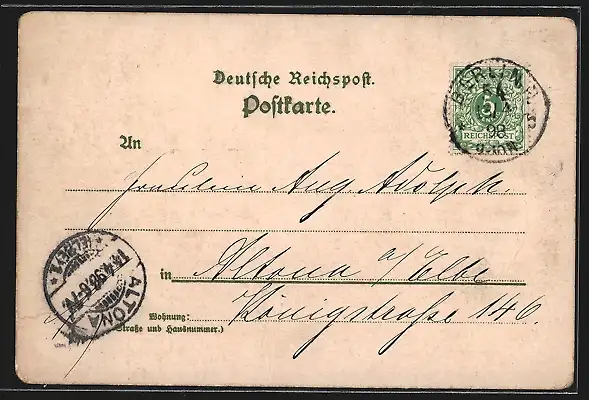 Deutsche Reichspost.
Postkarte.
BERLIN
54
98
9-10N
5
REICHSPOST
An
Fräulein Aug. Adolph.
in Altona a/Elbe
Wohnung: Königstraße 146.
(Straße und Hausnummer.)
ALTONA